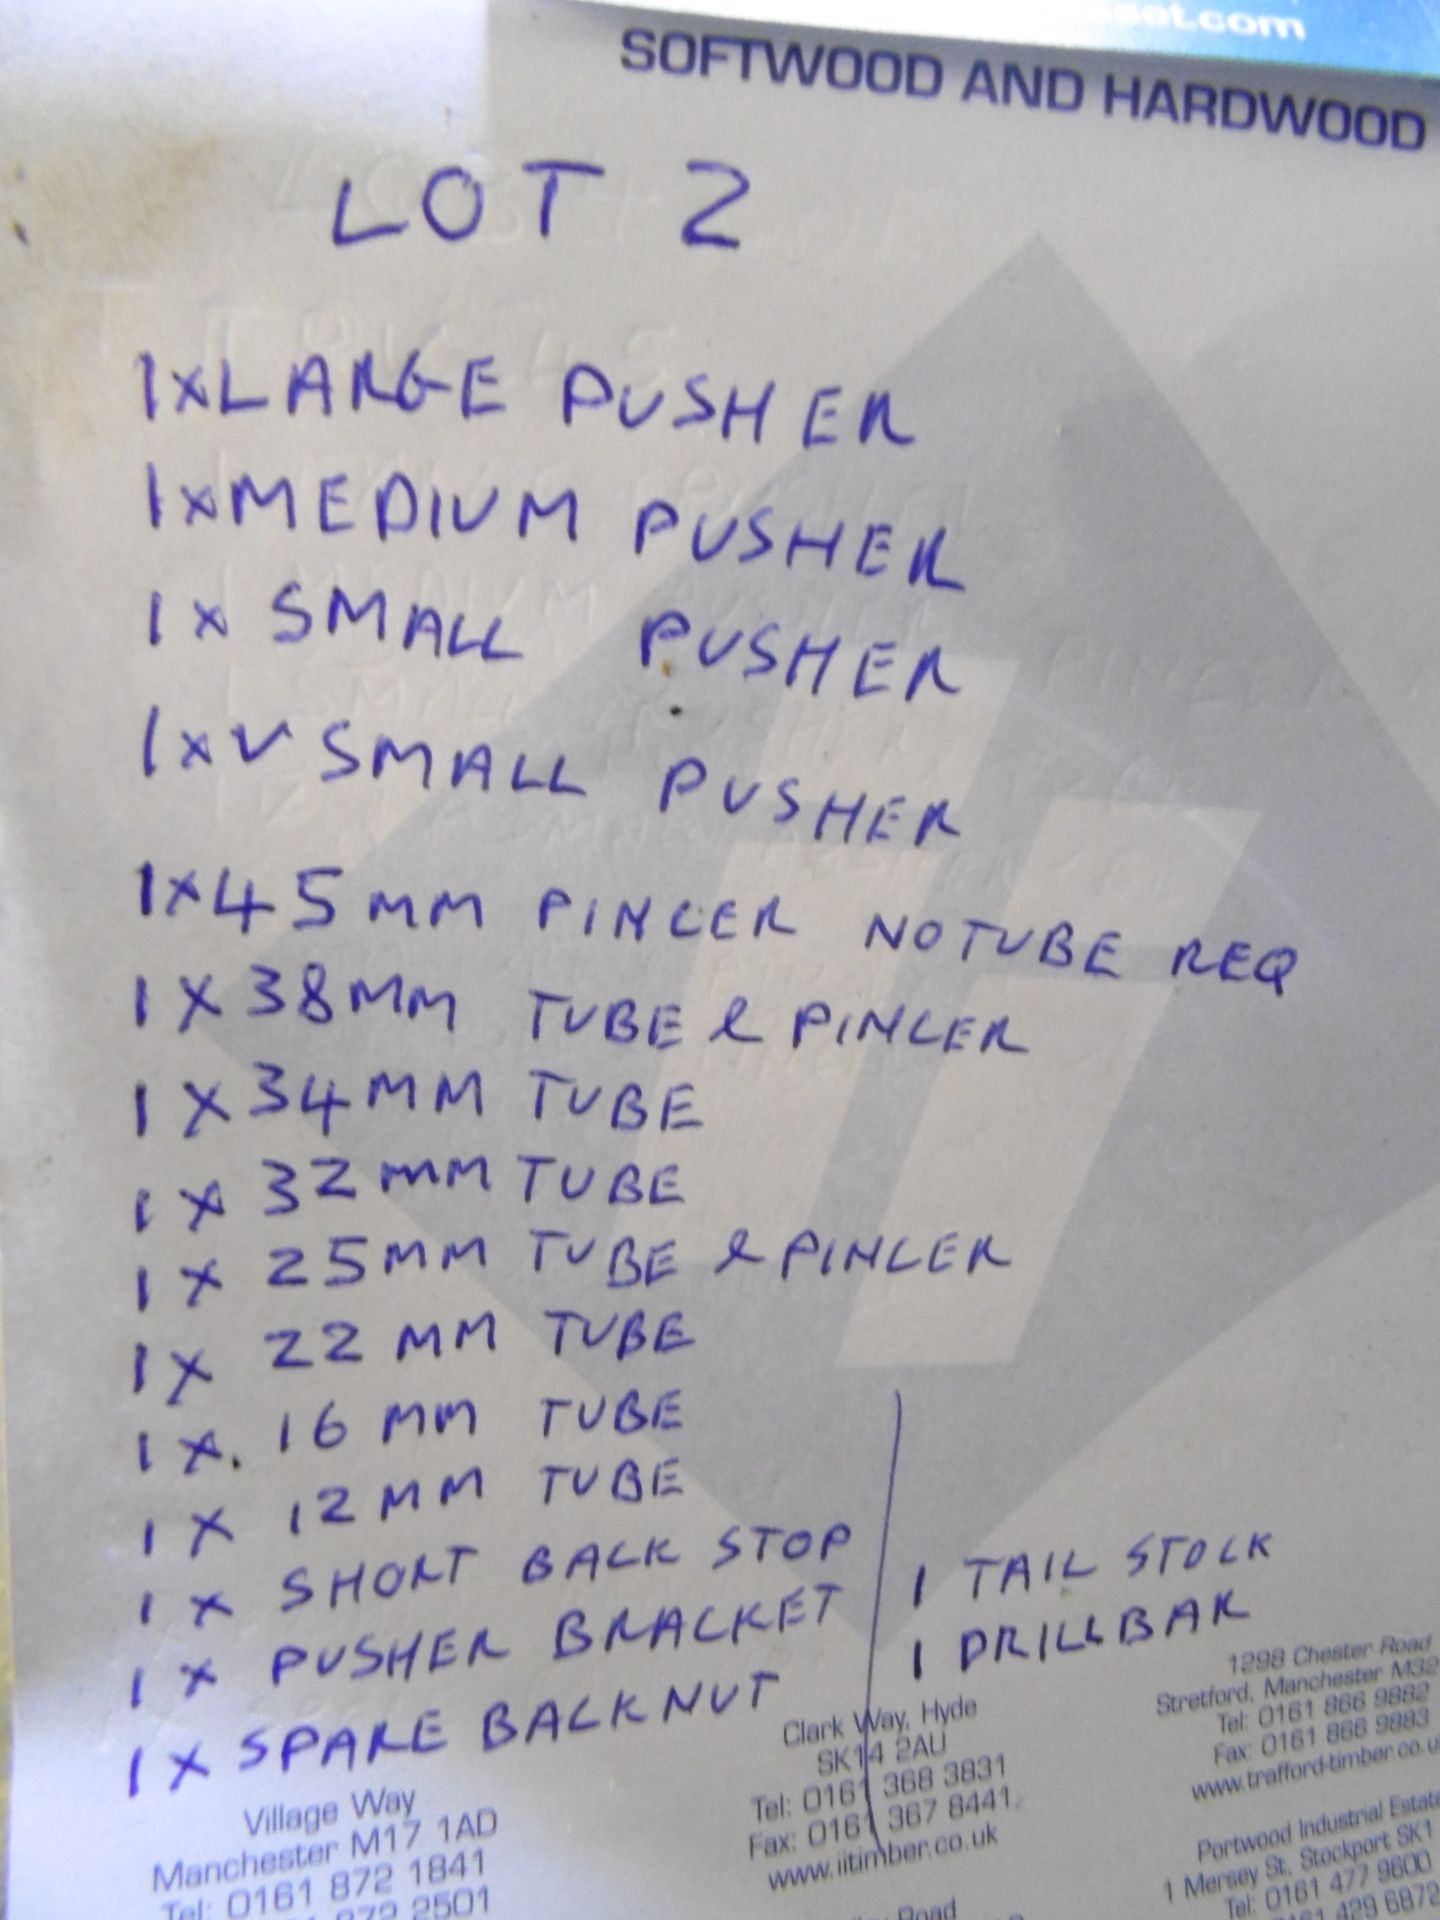 set.com
SOFTWOOD AND HARDWOOD
LOT 2
1xLARGE PUSHER
1xMEDIUM PUSHER
1x SMALL PUSHER
1xV SMALL PUSHER
1x45MM PINCER NOTUBE REQ
1X38MM TUBE & PINCER
1X34MM TUBE
1X 32MM TUBE
1X 25MM TUBE & PINCER
1X 22MM TUBE
1X. 16MM TUBE
1X 12MM TUBE
1X SHORT BACK STOP
1X PUSHER BRACKET
1X SPARE BACKNUT
1 TAIL STOCK
1 DRILLBAR
Village Way
Manchester M17 1AD
Tel: 0161 872 1841
872 2501
Clark Way, Hyde
SK14 2AU
Tel: 0161 368 3831
Fax: 0161 367 8441
www.iitimber.co.uk
Road
1298 Chester Road
Stretford, Manchester M32
Tel: 0161 866 9882
Fax: 0161 866 9883
www.trafford-timber.co.u
Portwood Industrial Estate
1 Mersey St, Stockport SK1
Tel: 0161 477 9600
0161 429 6872